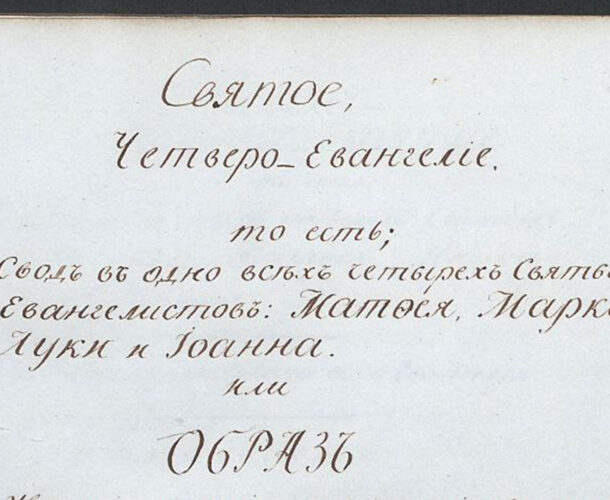 Святое,
Четверо-Евангелiе.
то есть;
Сводъ въ одно всѣхъ четырехъ Святы
Евангелистовъ: Матѳея, Марк
Луки и Iоанна.
или
ОБРАЗЪ